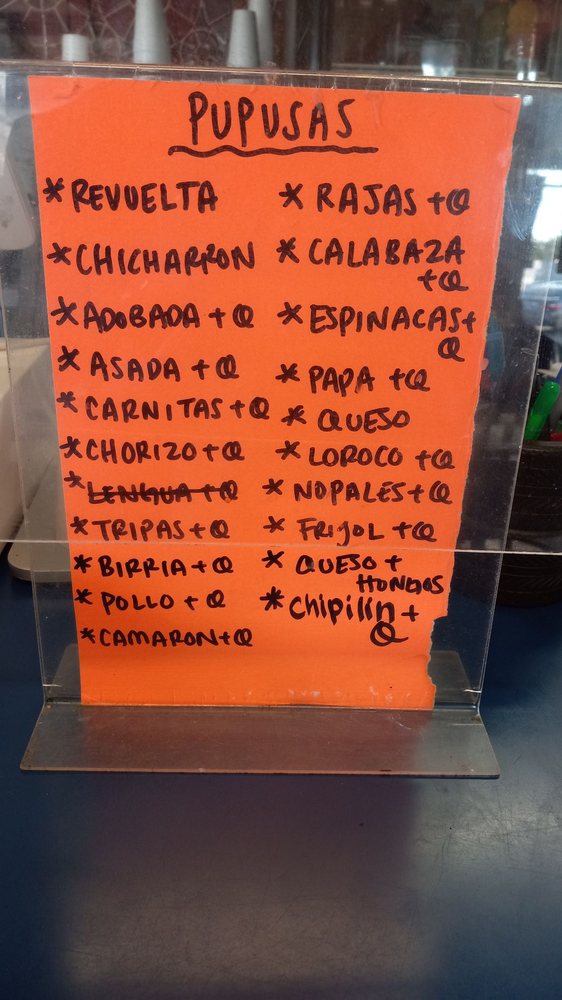 PUPUSAS
* REVUELTA
* CHICHARRON
* ADOBADA + Q
* ASADA + Q
* CARNITAS + Q
* CHORIZO + Q
* LENGUA + Q
* TRIPAS + Q
* BIRRIA + Q
* POLLO + Q
* CAMARON + Q
* RAJAS + Q
* CALABAZA
+ Q
* ESPINACAS +
Q
* PAPA + Q
* QUESO
* LOROCO + Q
* NOPALES + Q
* FRIJOL + Q
* QUESO +
HONGOS
* Chipilin +
Q